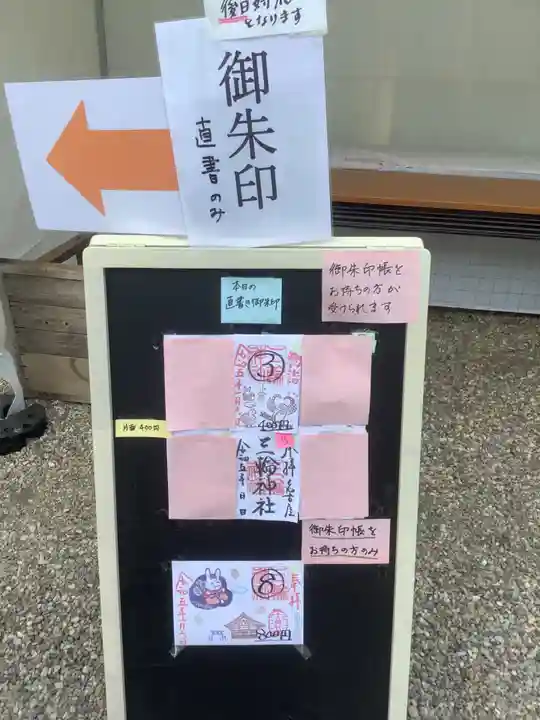 後日対応
となります
御朱印
直書のみ
本日の
直書き御朱印
御朱印帳を
お持ちの方が
受けられます
③
400円
片面 400円
奉拝 名古屋
三輪神社
令和五年 月 日
御朱印帳を
お持ちの方のみ
奉拝
⑧
令和五年 月 日
800円